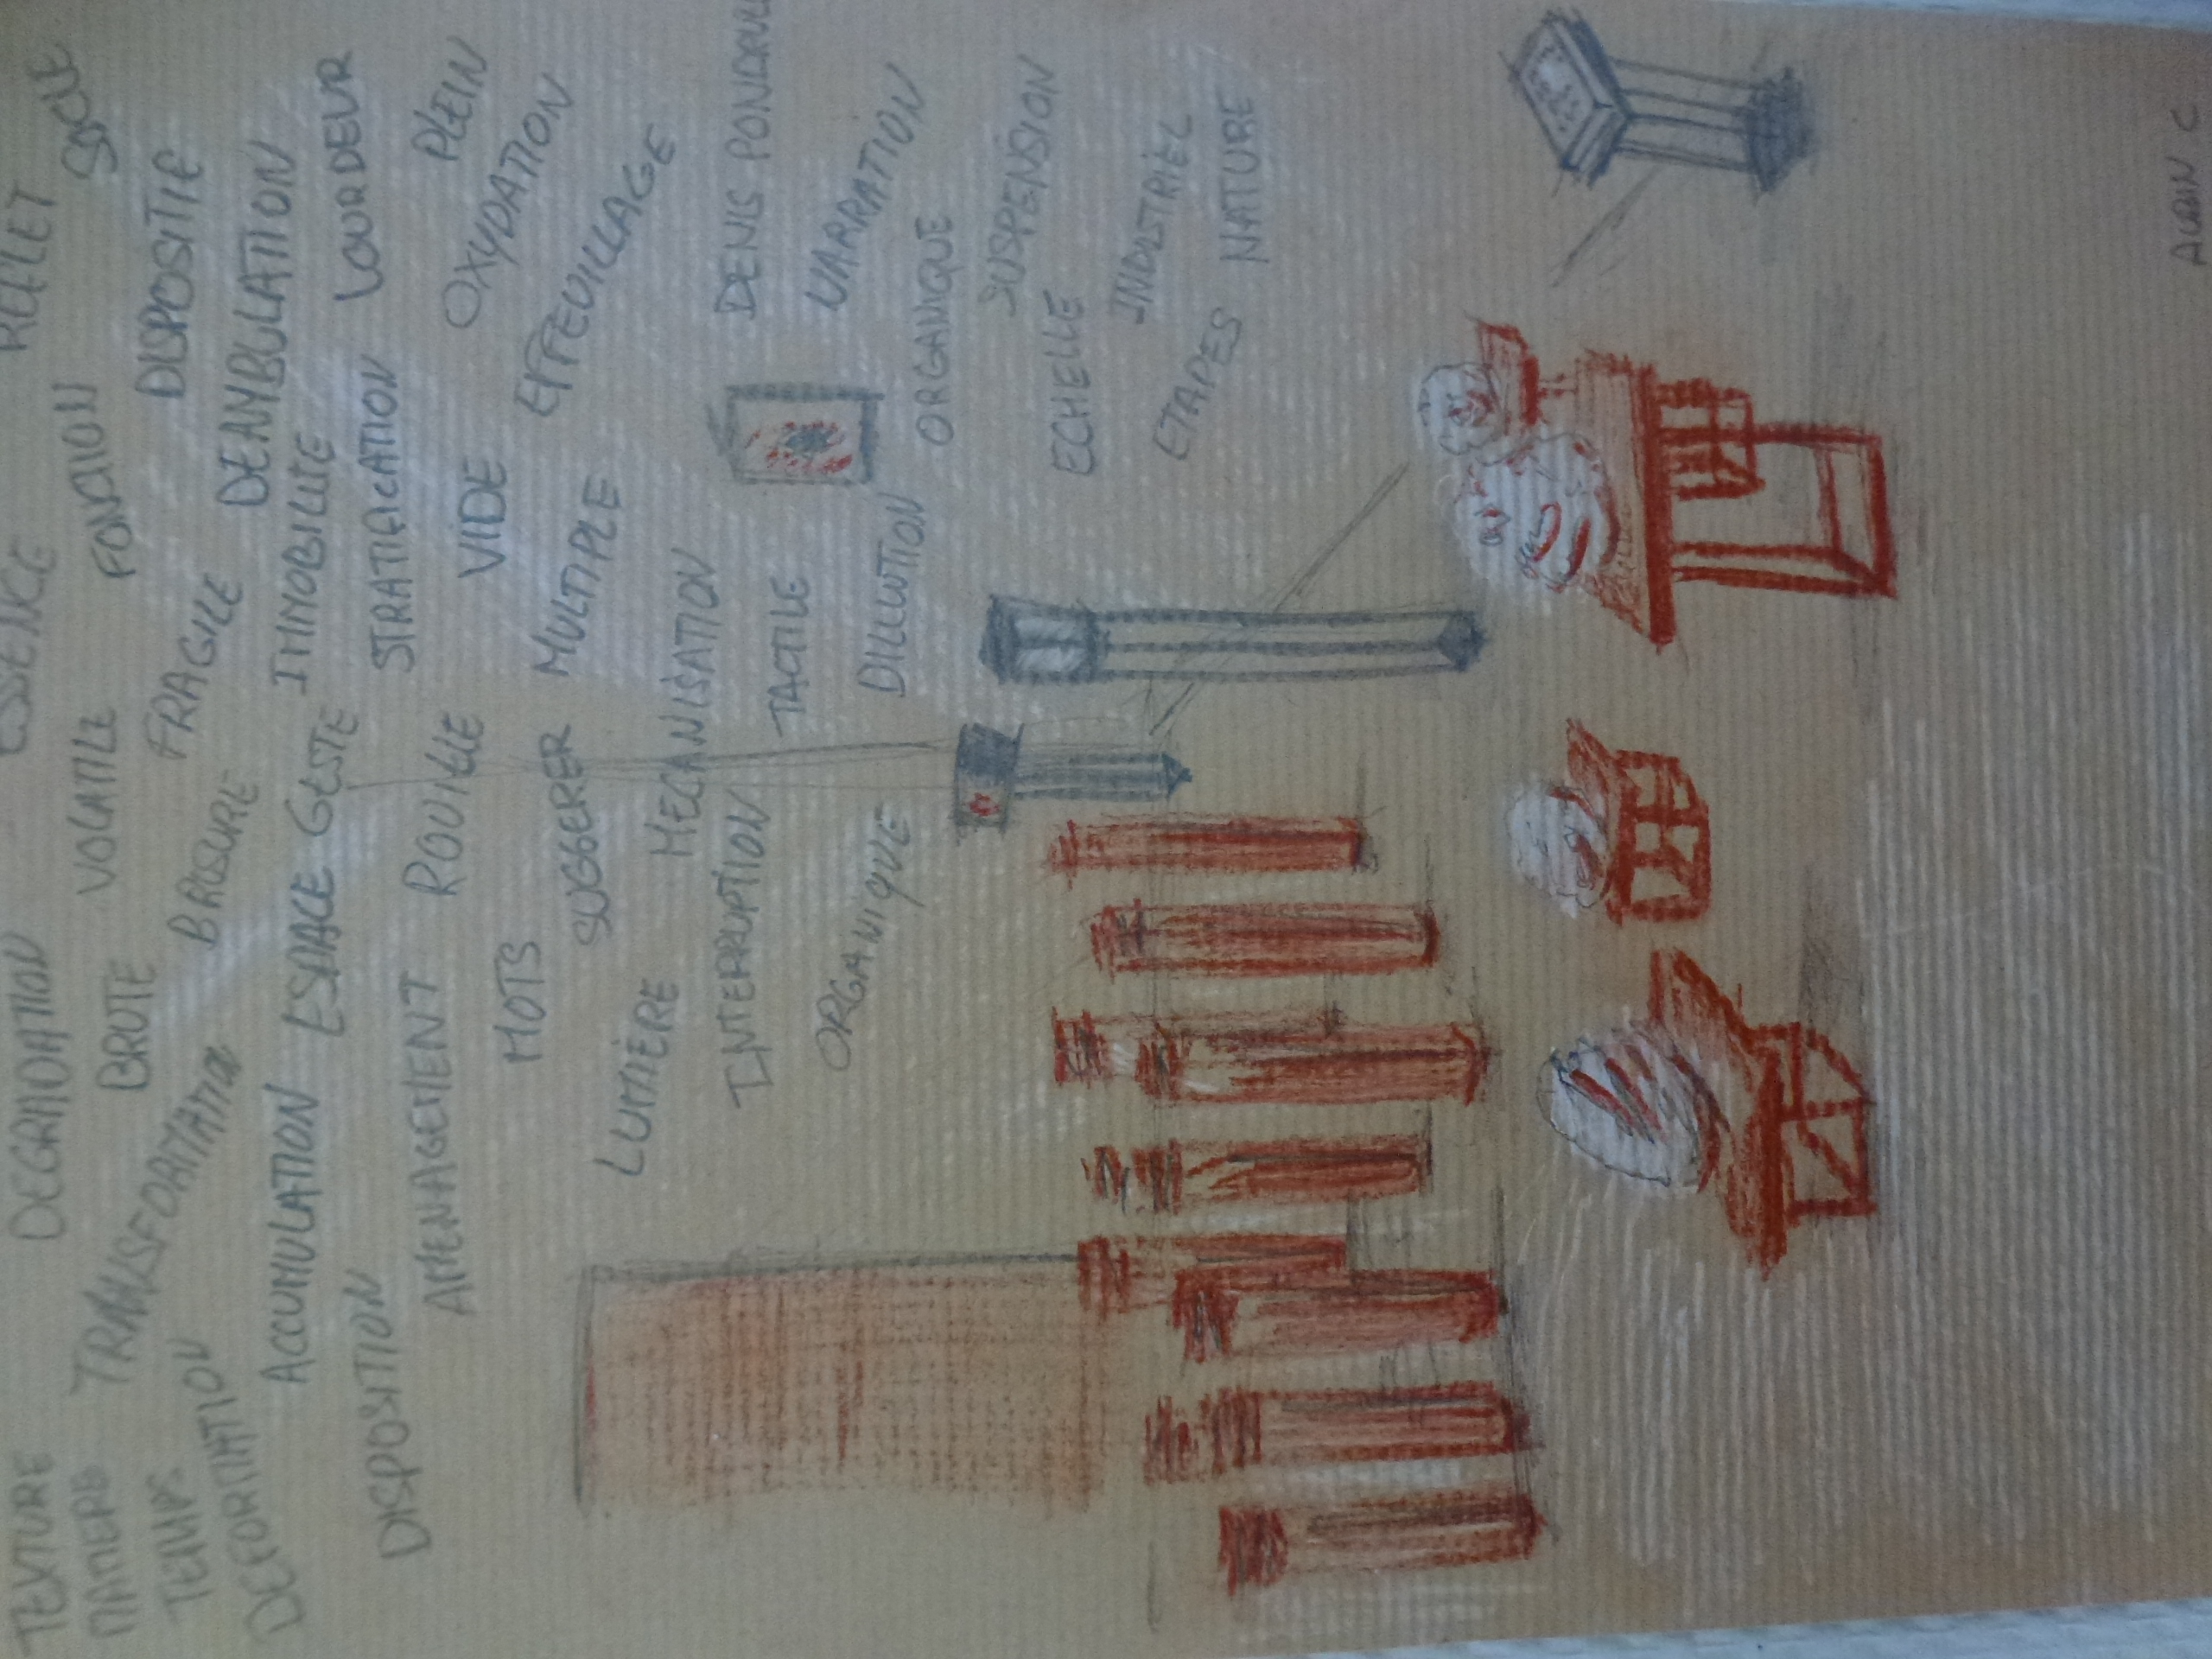 TEXTURE DEGRADATION ESSENCE REFLET
MATIERE BRUTE VOLATILE FONCTION SOCLE
TEMPS TRANSFORMATION BRISURE FRAGILE DISPOSITIF
DEFORMATION ACCUMULATION ESPACE GESTE IMMOBILITE DEAMBULATION
DISPOSITION STRATIFICATION LOURDEUR
AMENAGEMENT ROUILLE VIDE PLEIN
MOTS OXYDATION
SUGGERER MULTIPLE EFFEUILLAGE
LUMIÈRE MECANISATION
INTERRUPTION TACTILE DENIS
ORGANIQUE DILLUTION NARRATION
ORGANIQUE SUSPENSION
ECHELLE
ETAPES INDUSTRIEL
NATURE